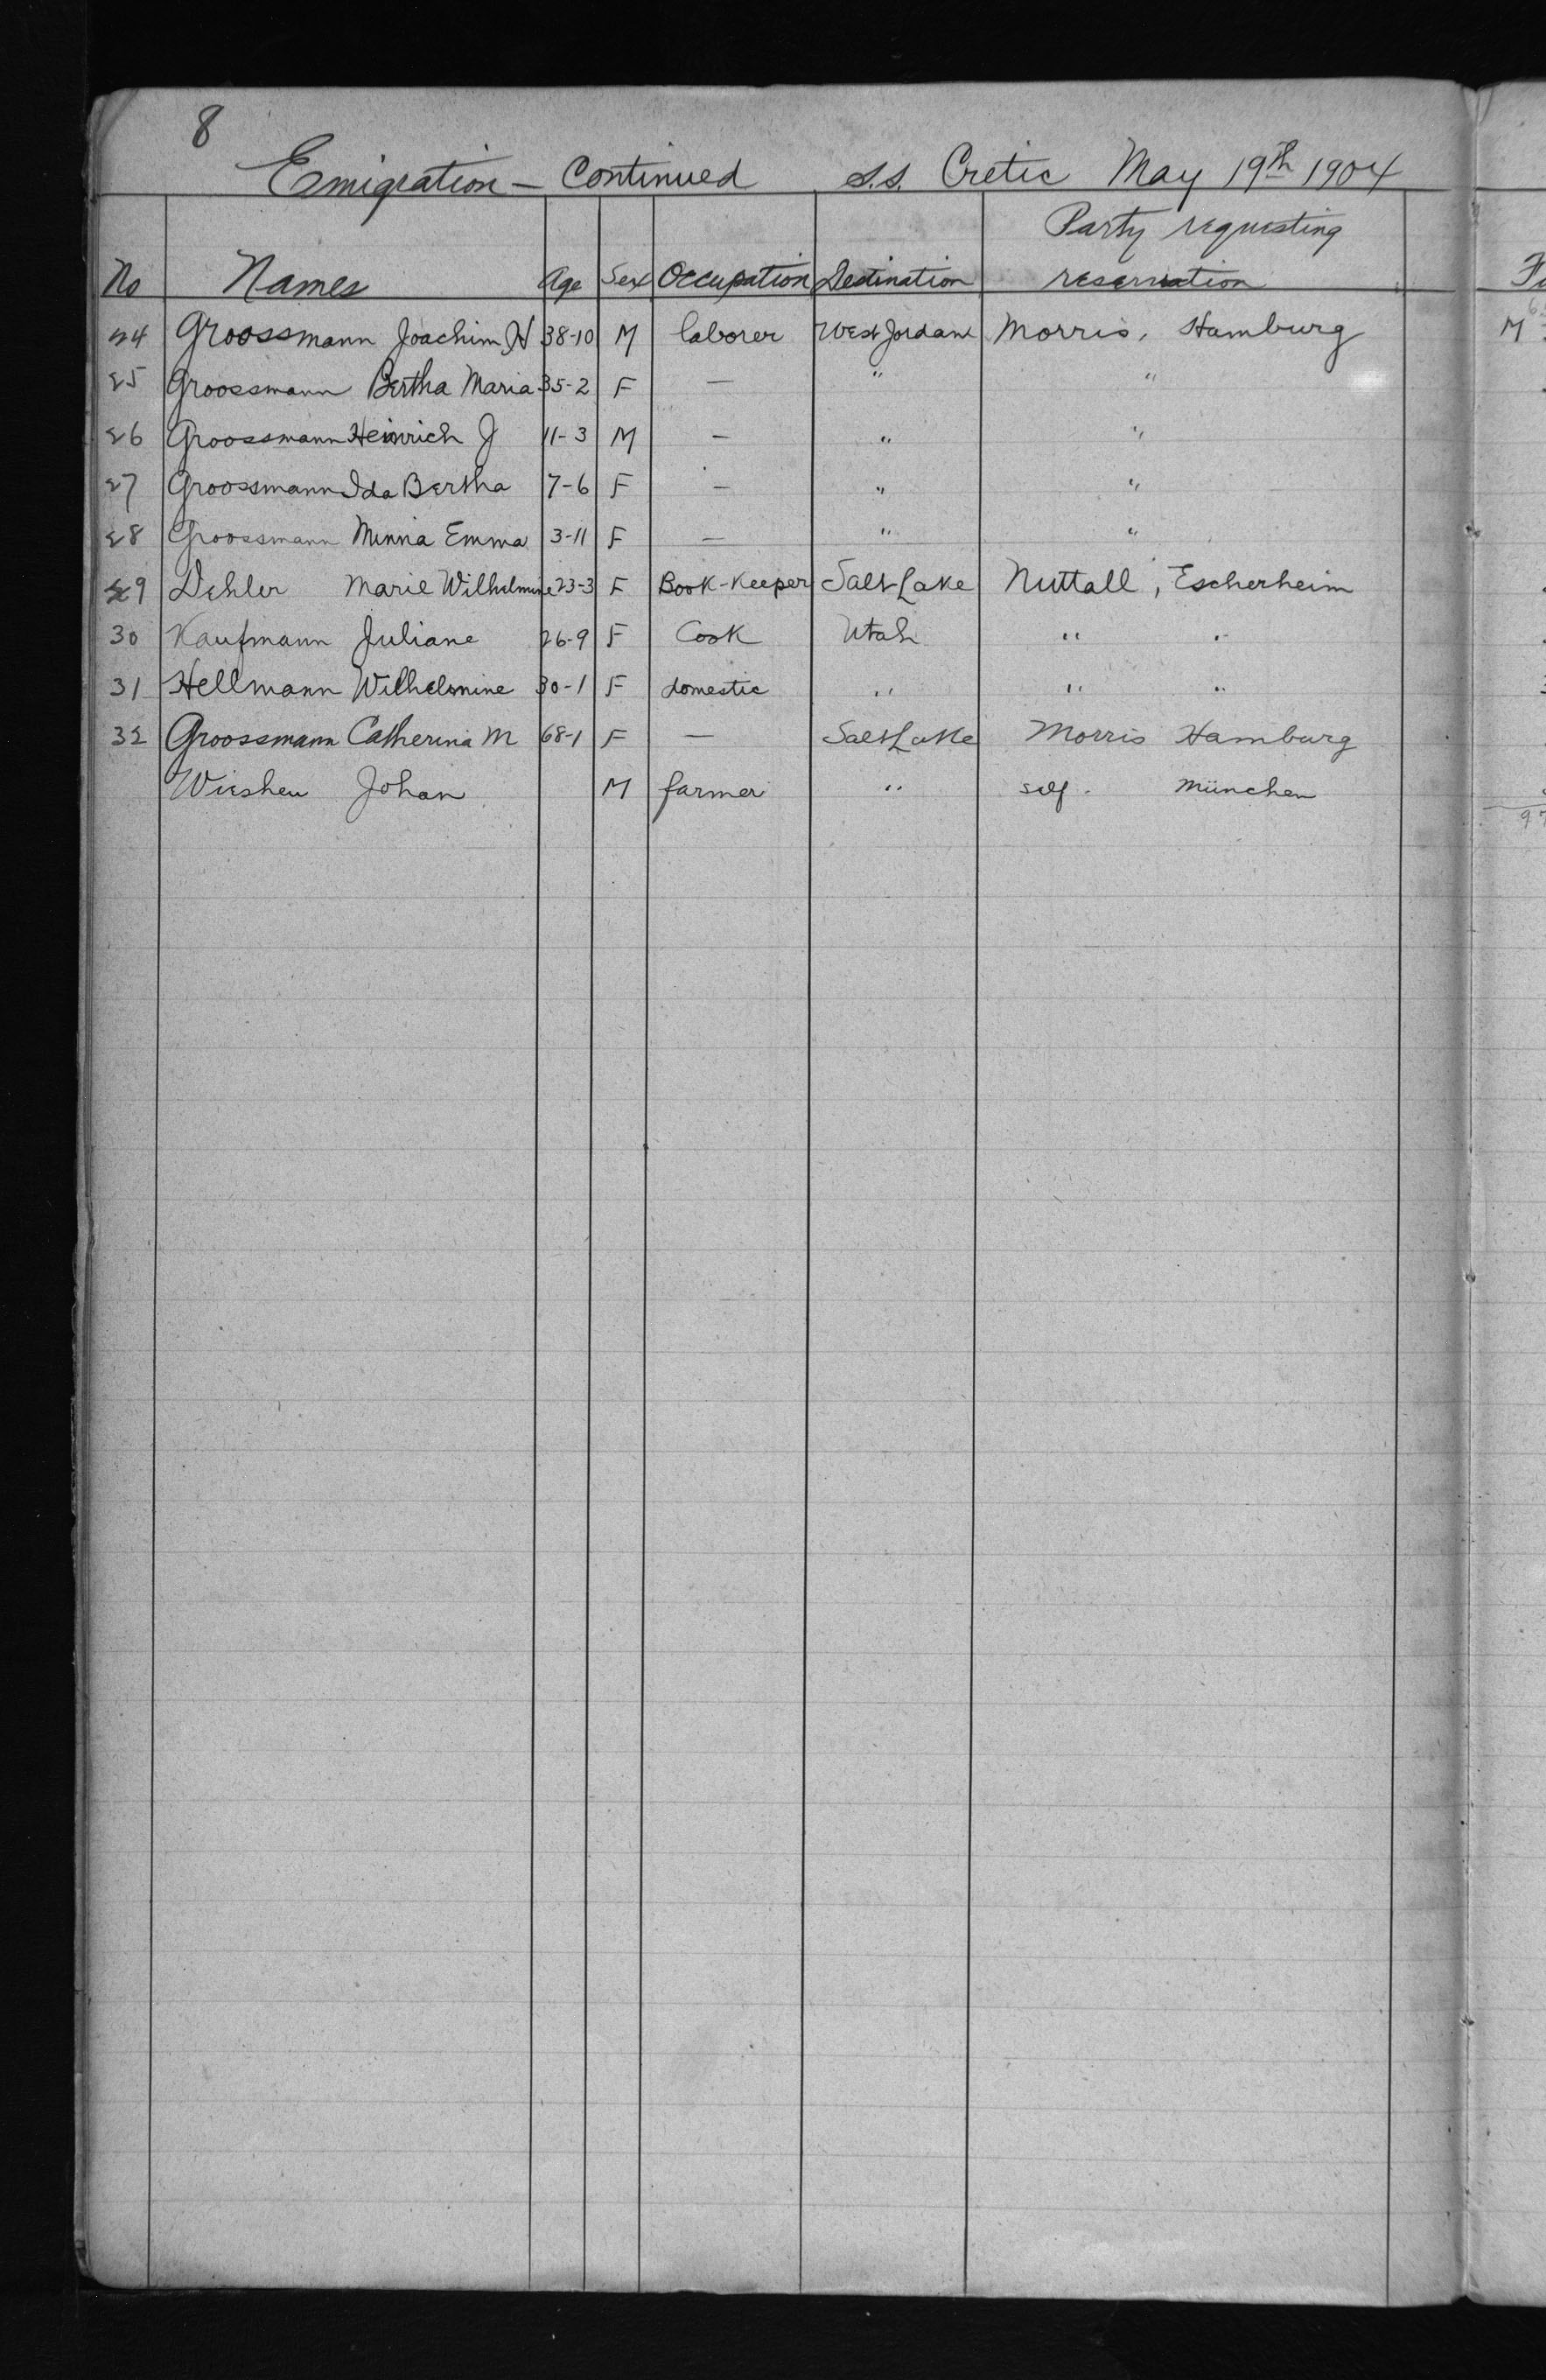 8
Emigration — Continued S.S. Cretic May 19th 1904
Party requesting
No Names Age Sex Occupation Destination reservation
24 Groossmann Joachim H 38-10 M laborer West Jordan Morris, Hamburg
25 Groossmann Bertha Maria 35-2 F — " "
26 Groossmann Heinrich J 11-3 M — " "
27 Groossmann Ida Bertha 7-6 F — " "
28 Groossmann Minna Emma 3-11 F — " "
29 Dehler Marie Wilhelmine 23-3 F Book-Keeper Salt Lake Nuttall, Escherheim
30 Kaufmann Juliane 26-9 F Cook Utah " "
31 Hellmann Wilhelmine 30-1 F domestic " " "
32 Groossmann Catherina M 68-1 F — Salt Lake Morris Hamburg
Wiesheu Johan M farmer " self. München
M